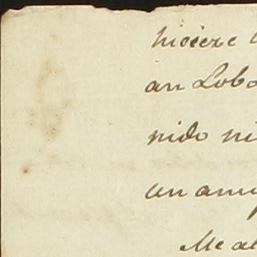 hiciere
an Lobo
nido ni
un ami
Me a